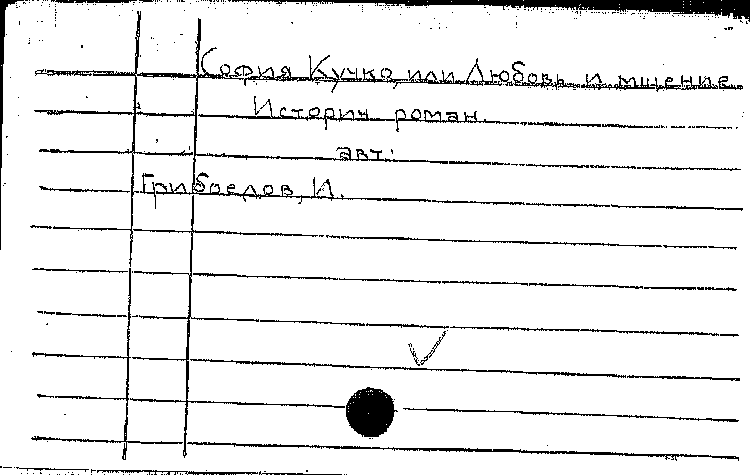 София Кучко, или Любовь и мщение
Историч. роман.
авт.:
Грибоедов, И.